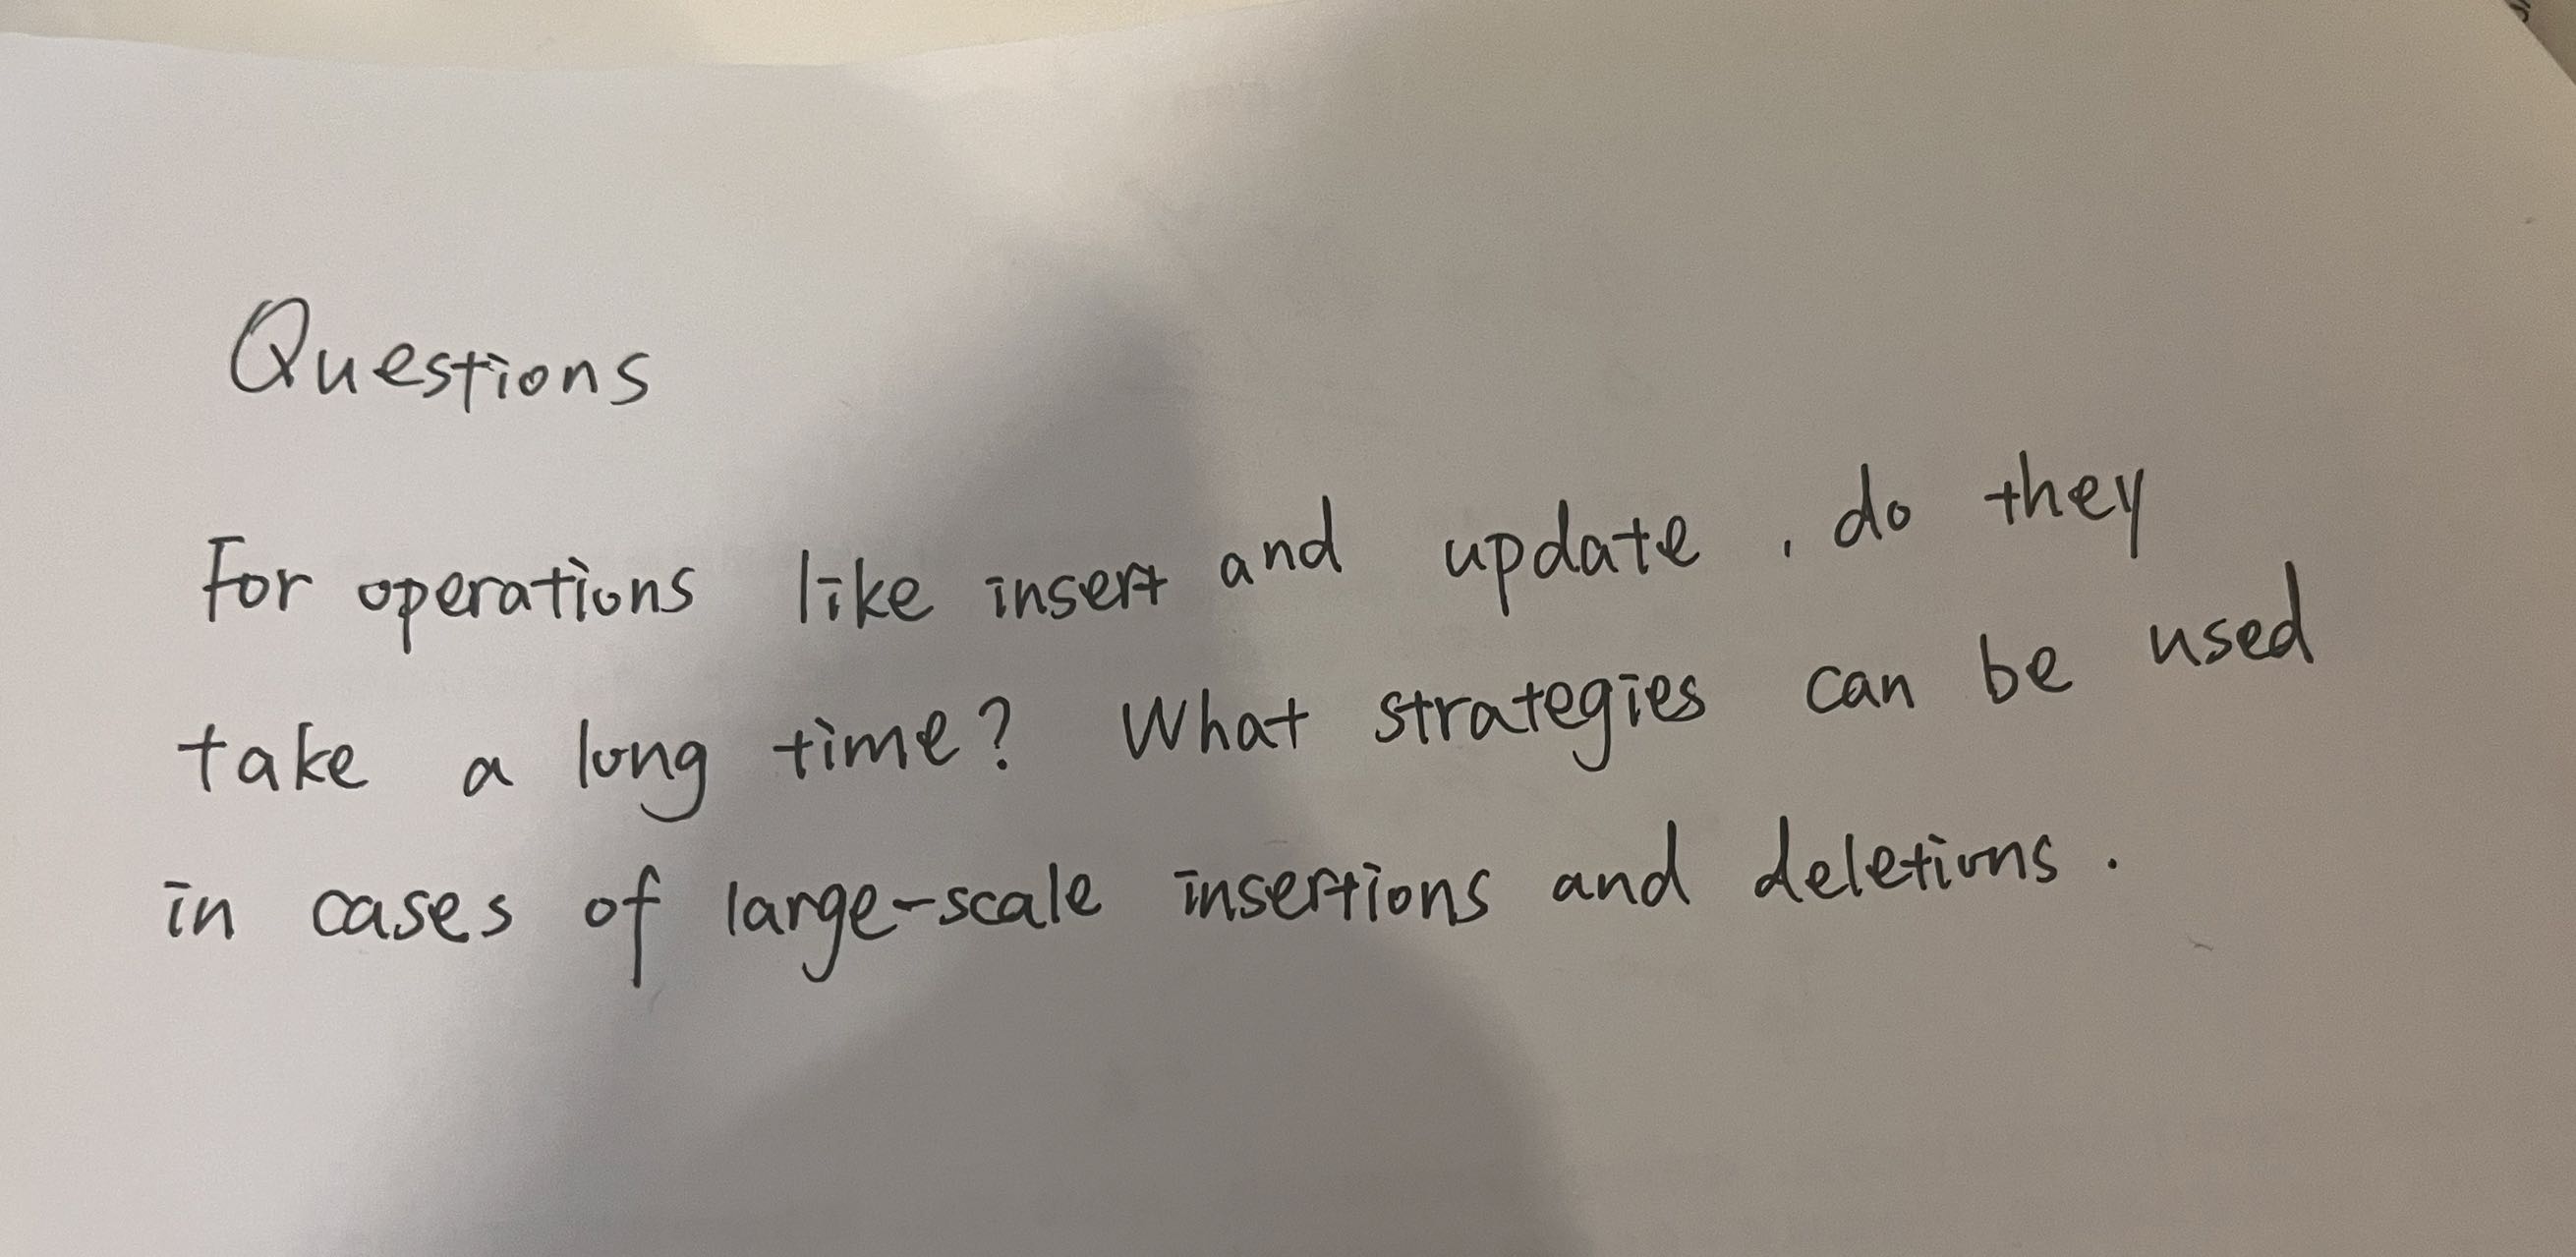 Questions
For operations like insert and update, do they
take a long time? What strategies can be used
in cases of large-scale insertions and deletions.